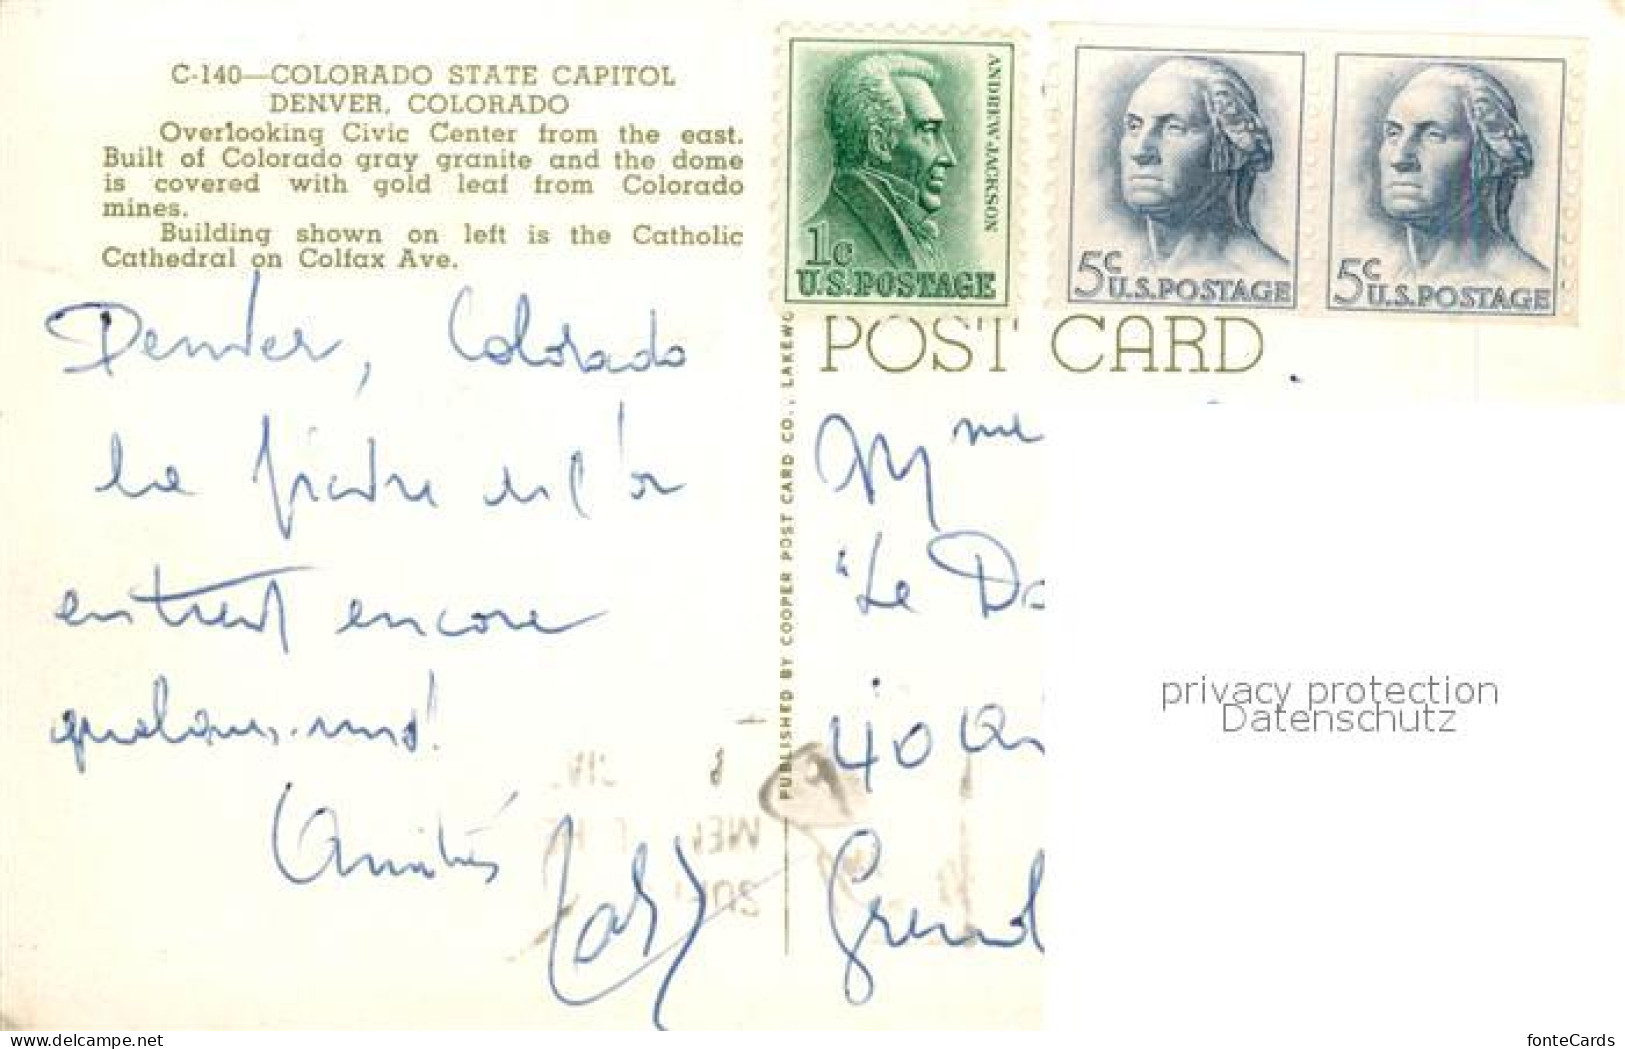 C-140—COLORADO STATE CAPITOL
DENVER, COLORADO
Overlooking Civic Center from the east.
Built of Colorado gray granite and the dome
is covered with gold leaf from Colorado
mines.
Building shown on left is the Catholic
Cathedral on Colfax Ave.
Denver, Colorado
la et l'or
entrent encore
Amitiés
PUBLISHED BY COOPER POST CARD CO., LAKEWO
ANDREW JACKSON
1c
U.S. POSTAGE
5c
U.S. POSTAGE
5c
U.S. POSTAGE
POST CARD
Mme
"Le Do
40
Grenob
privacy protection
Datenschutz
www.delcampe.net
fonteCards